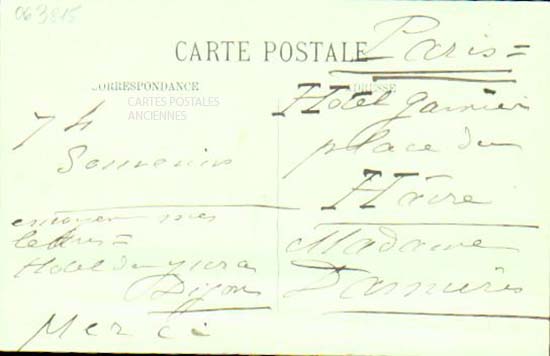 063815
CARTE POSTALE
CORRESPONDANCE
CARTES POSTALES
ANCIENNES
74
Souvenirs
envoyer mes
lettres=
Hotel du Jura
Dijon
Merci
Paris=
ADRESSE
Hôtel Garnier
place du
Hâvre
Madame
Darnieres